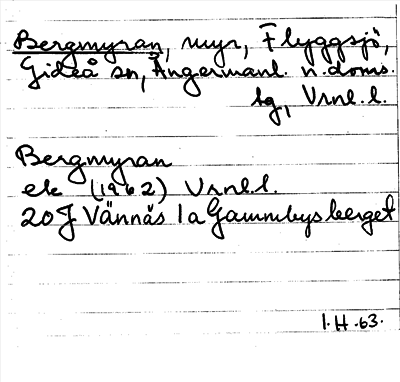 Bergmyran, myr, Flyggsjö,
Gideå sn, Ångermanl. n. doms.
tg, Vrnl. l.
Bergmyran
ek (1962) Vrnl. l.
20J Vännäs 1a Gammbysberget
I.H.63.